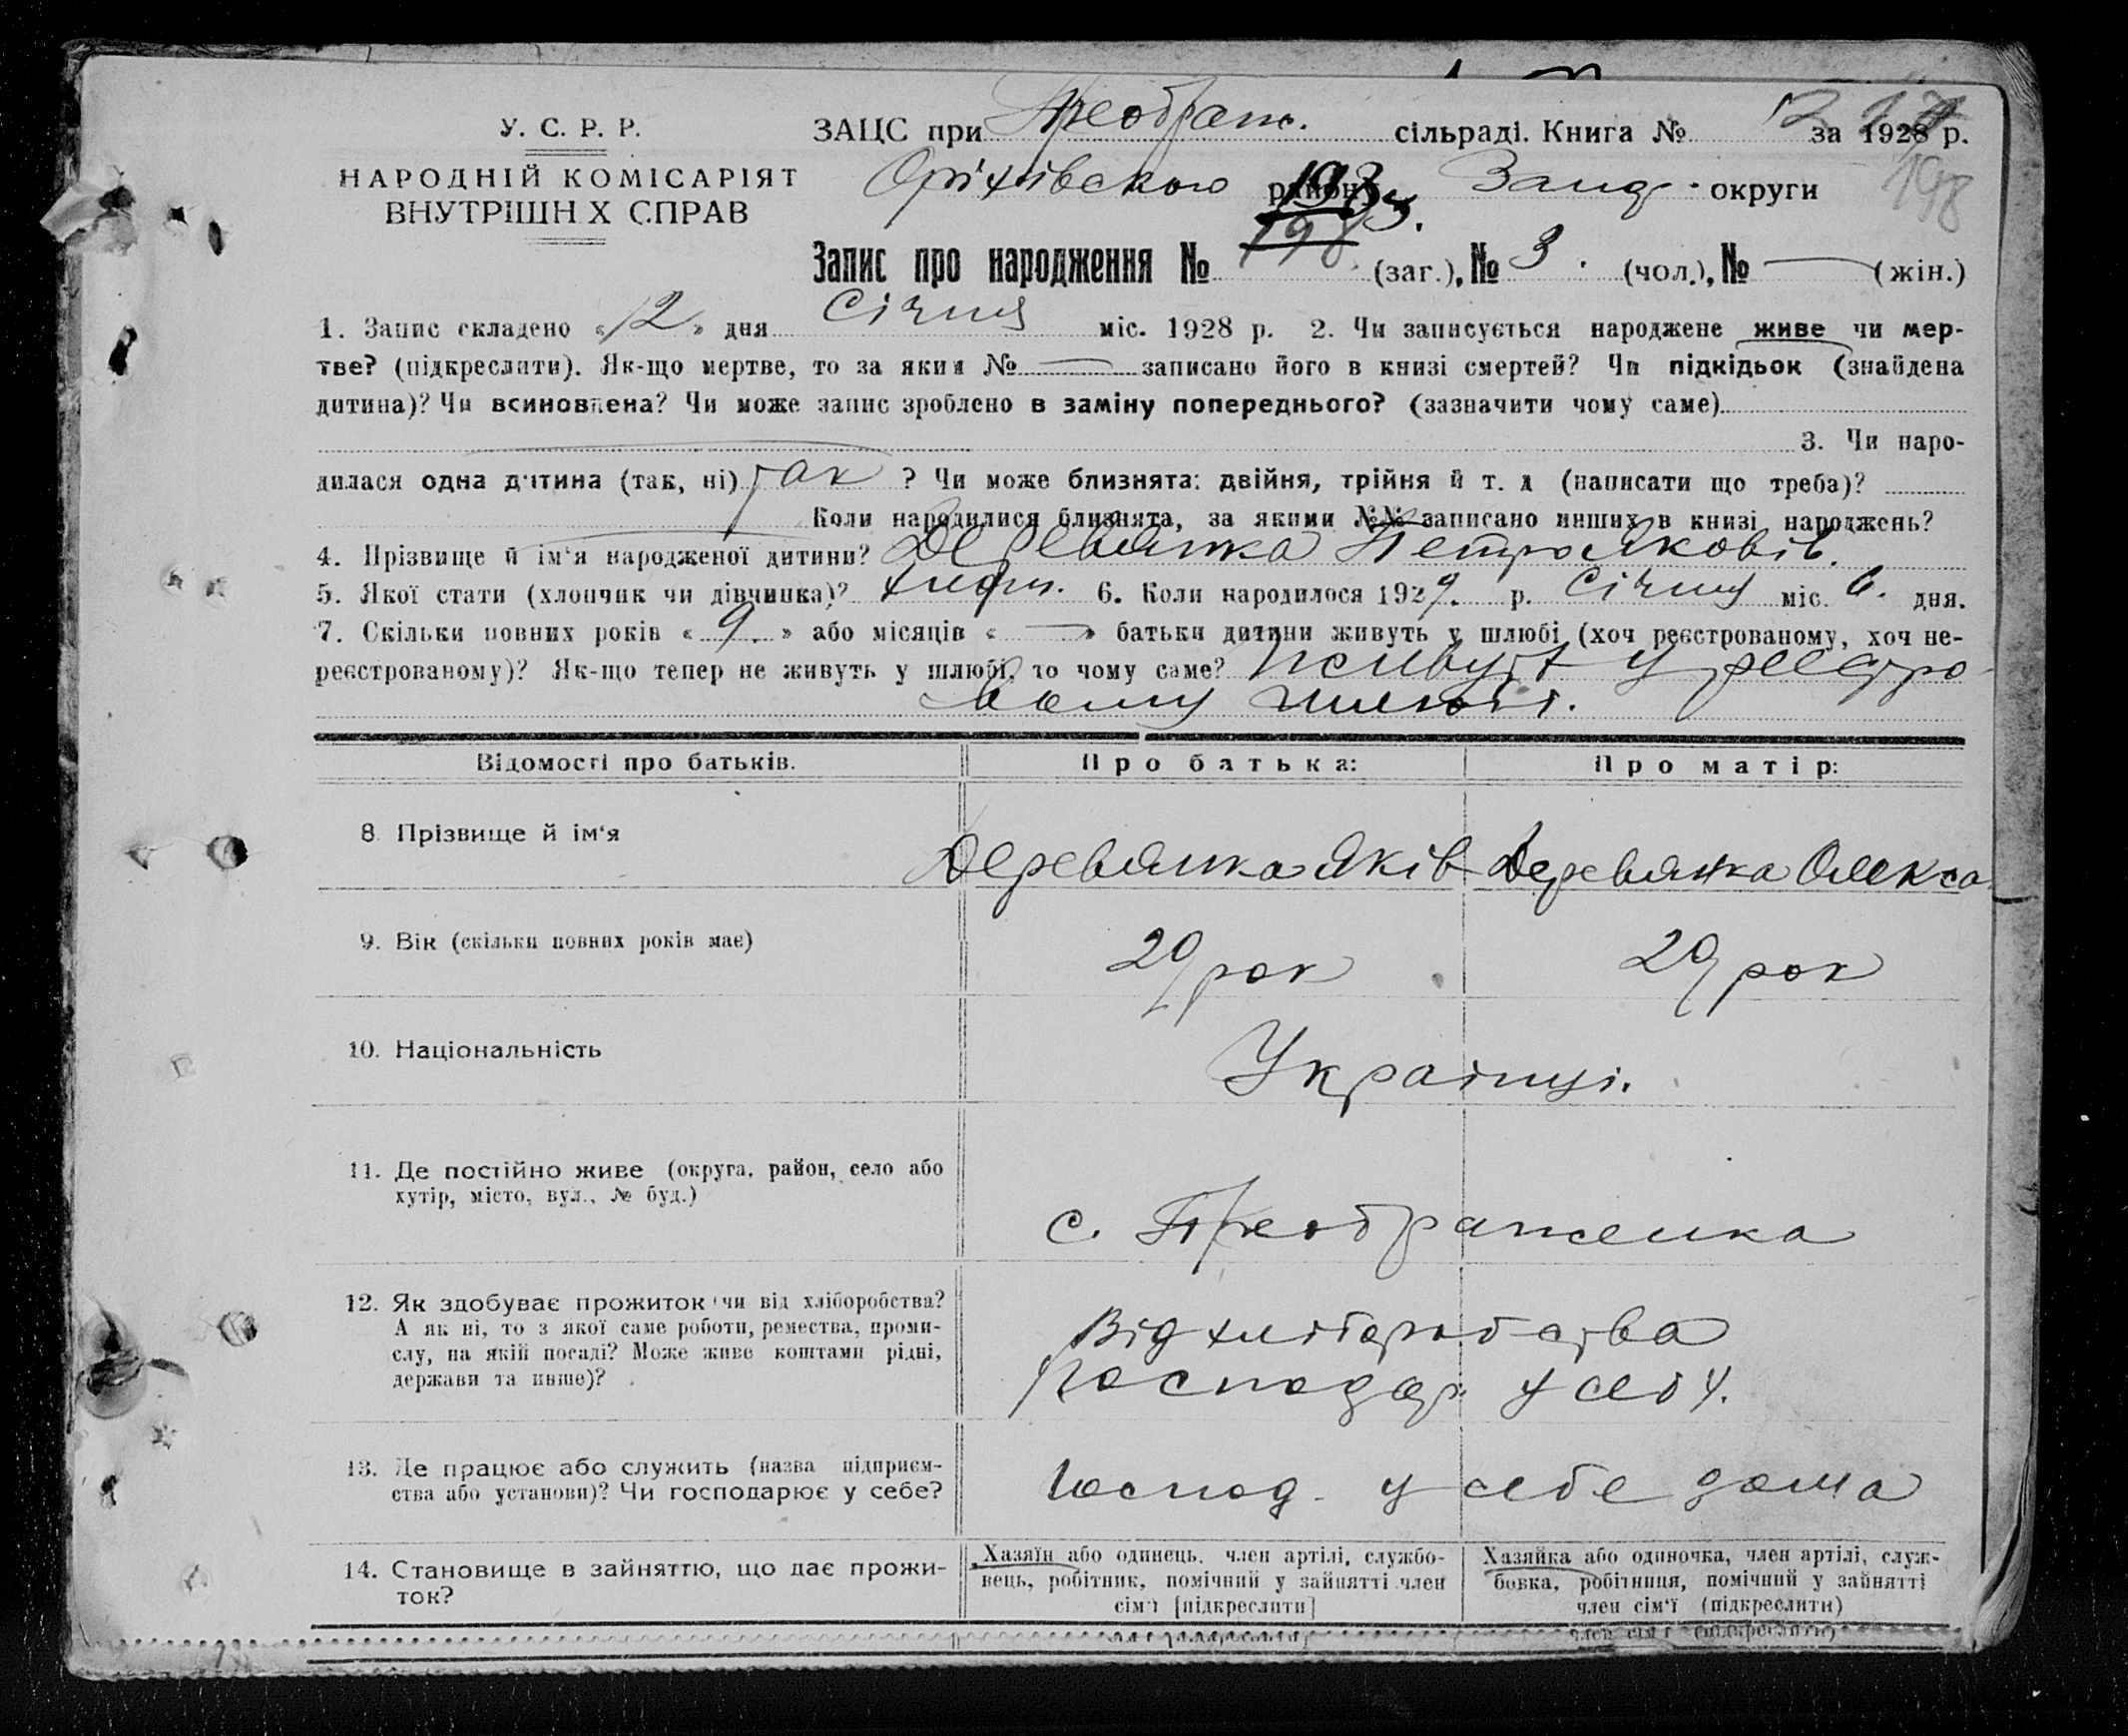 У. С. Р. Р.
НАРОДНІЙ КОМІСАРІЯТ
ВНУТРІШН Х СПРАВ
ЗАЦС при Преображ. сільраді. Книга № за 1928 р.
Оріхівського район Запор. округи
198
Запис про народження № 198 (заг.), № 3. (чол.), № — (жін.)
1. Запис складено «12» дня Січня міс. 1928 р. 2. Чи записується народжене живе чи мер-
тве? (підкреслити). Як-що мертве, то за яким № — записано його в книзі смертей? Чи підкідьок (знайдена
дитина)? Чи всиновлена? Чи може запис зроблено в заміну попереднього? (зазначити чому саме)
3. Чи наро-
дилася одна дитина (так, ні) так ? Чи може близнята: двійня, трійня й т. д (написати що треба)?
Коли народилися близнята, за якими №№ записано инших в книзі народжень?
4. Прізвище й ім'я народженої дитини? Деревянка Петро Яковів.
5. Якої стати (хлопчик чи дівчинка)? хлопч. 6. Коли народилося 1929. р. Січня міс. 6. дня.
7. Скільки повних років «9.» або місяців «—» батьки дитини живуть у шлюбі (хоч реєстрованому, хоч не-
реєстрованому)? Як-що тепер не живуть у шлюбі, то чому саме? живуть у реєстро
вому шлюбі.
Відомості про батьків.
Про батька:
Про матір:
8. Прізвище й ім'я
Деревянка Яків
Деревянка Олекса
9. Вік (скільки повних років має)
29 рок
29 рок
10. Національність
Українці.
11. Де постійно живе (округа, район, село або
хутір, місто, вул., № буд.)
с. Преображенка
12. Як здобуває прожиток чи від хліборобства?
А як ні, то з якої саме роботи, ремества, проми-
слу, на якій посаді? Може живе коштами рідні,
держави та инше)?
Від хліборобства
господар. у себ
13. Де працює або служить (назва підприєм-
ства або установи)? Чи господарює у себе?
Господ. у себе дома
14. Становище в зайняттю, що дає прожи-
ток?
Хазяїн або одинець, член артілі, службо-
вець, робітник, помічний у зайнятті член
сім'ї [підкреслити]
Хазяйка або одиночка, член артілі, служ-
бовка, робітниця, помічний у зайнятті
член сім'ї (підкреслити)
член сім'ї (підкреслити)